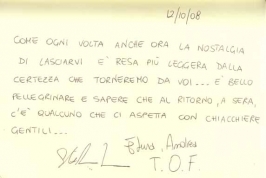 12/10/08
COME OGNI VOLTA ANCHE ORA LA NOSTALGIA
DI LASCIARVI E' RESA PIÙ LEGGERA DALLA
CERTEZZA CHE TORNEREMO DA VOI... E' BELLO
PELLEGRINARE E SAPERE CHE AL RITORNO, A SERA,
C'E' QUALCUNO CHE CI ASPETTA CON CHIACCHIERE
GENTILI...
Andrea
T.O.F.